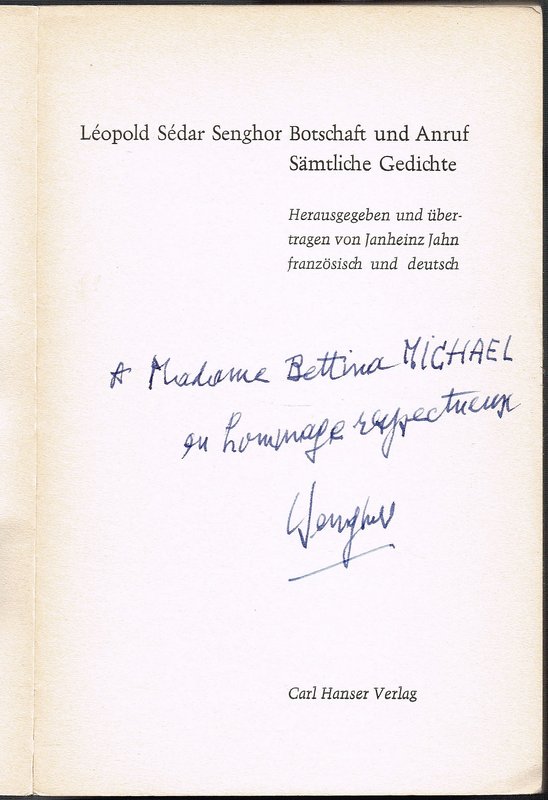 Léopold Sédar Senghor Botschaft und Anruf
Sämtliche Gedichte
Herausgegeben und über-
tragen von Janheinz Jahn
französisch und deutsch
A Madame Bettina MICHAEL
en hommage respectueux
Senghor
Carl Hanser Verlag